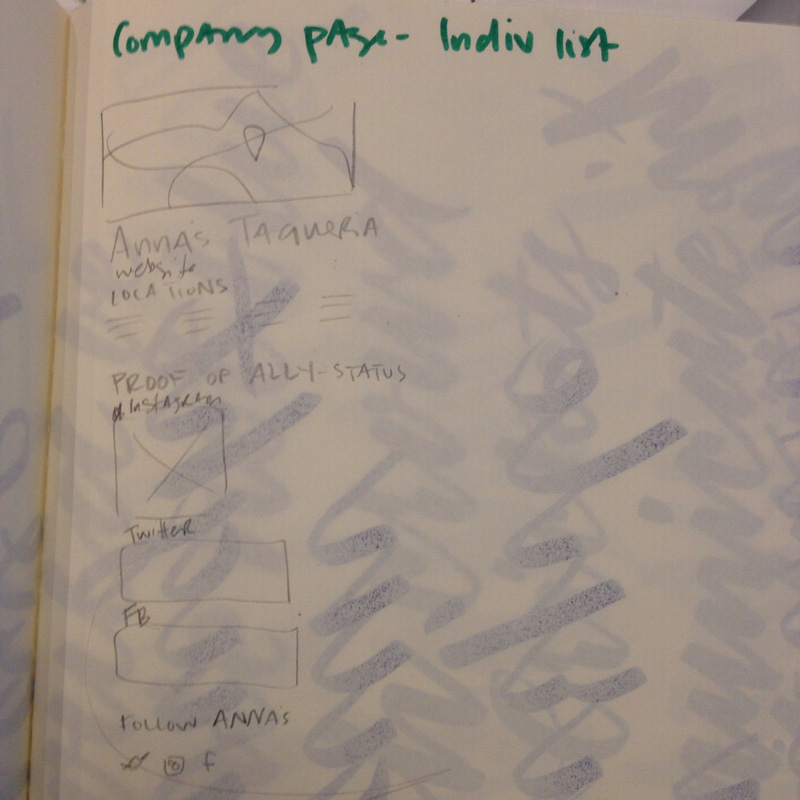 Company page - Indiv list
ANNA'S TAQUERIA
website
LOCATIONS
PROOF OF ALLY-STATUS
INSTAGRAM
Twitter
FB
FOLLOW ANNA'S
f